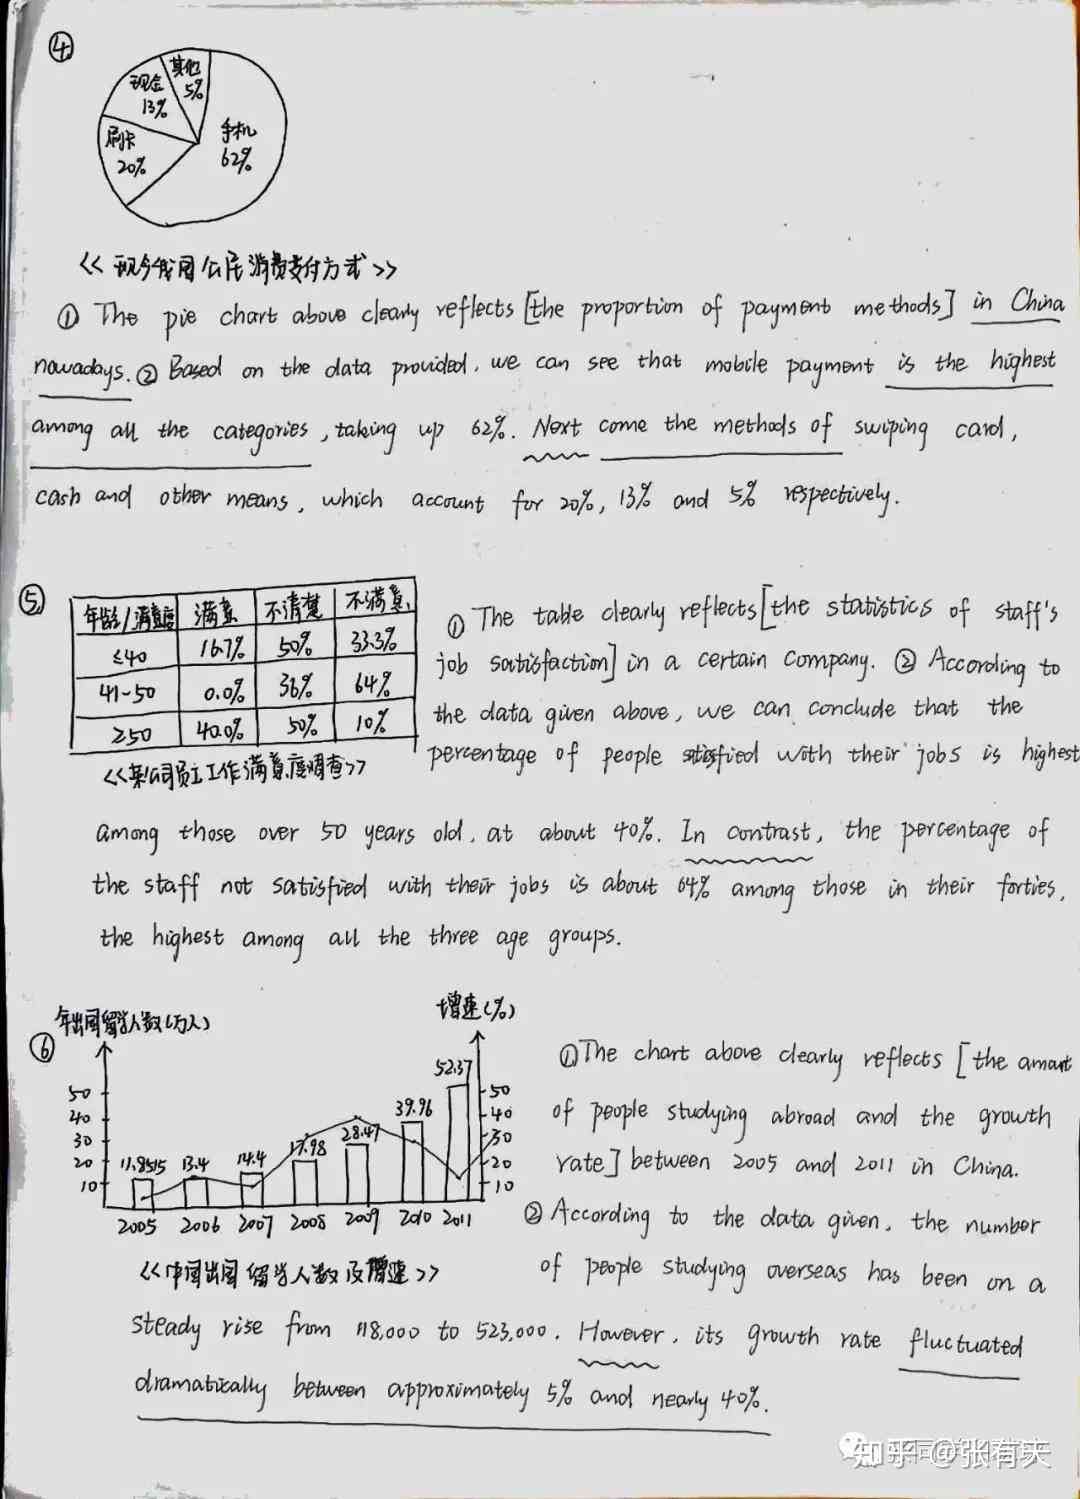 ④
其他
5%
现金
13%
刷卡
20%
手机
62%
《现今我国公民消费支付方式》
① The pie chart above clearly reflects [the proportion of payment methods] in China
nowadays. ② Based on the data provided, we can see that mobile payment is the highest
among all the categories, taking up 62%. Next come the methods of swiping card,
cash and other means, which account for 20%, 13% and 5% respectively.
⑤
年龄/满意度 满意 不清楚 不满意
≤40 16.7% 50% 33.3%
41-50 0.0% 36% 64%
≥50 40.0% 50% 10%
《某公司员工工作满意度调查》
① The table clearly reflects [the statistics of staff's
job satisfaction] in a certain company. ② According to
the data given above, we can conclude that the
percentage of people satisfied with their jobs is highest
among those over 50 years old, at about 40%. In contrast, the percentage of
the staff not satisfied with their jobs is about 64% among those in their forties,
the highest among all the three age groups.
⑥
年出国留学人数(万人)
增速(%)
50
40
30
20
10
11.8515 13.4 14.4 17.98 28.47 39.96 52.37
50
40
30
20
10
2005 2006 2007 2008 2009 2010 2011
《中国出国留学人数及增速》
① The chart above clearly reflects [the amount
of people studying abroad and the growth
rate] between 2005 and 2011 in China.
② According to the data given, the number
of people studying overseas has been on a
steady rise from 118,000 to 523,000. However, its growth rate fluctuated
dramatically between approximately 5% and nearly 40%.
知乎 @张有夫